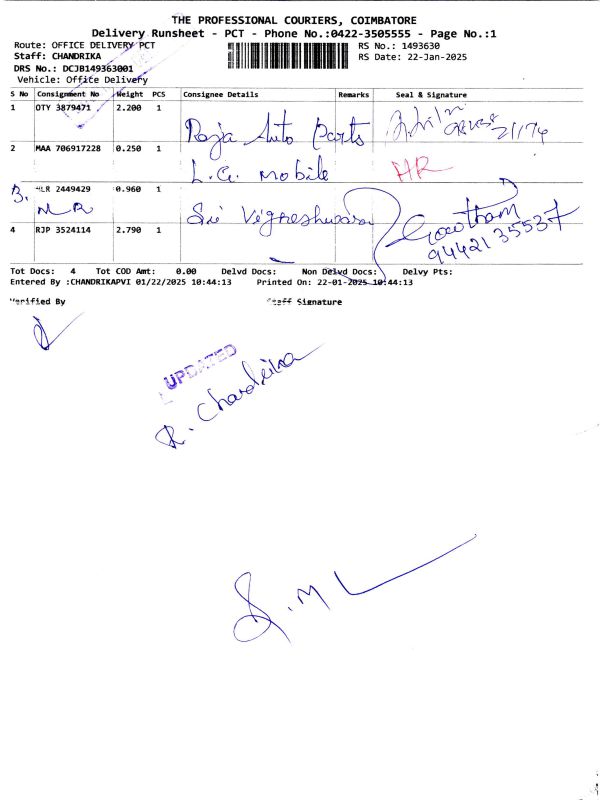 THE PROFESSIONAL COURIERS, COIMBATORE
Delivery Runsheet - PCT - Phone No.:0422-3505555 - Page No.:1
Route: OFFICE DELIVERY PCT
RS No.: 1493630
Staff: CHANDRIKA
RS Date: 22-Jan-2025
DRS No.: DCJB149363001
Vehicle: Office Delivery
S No Consignment No Weight PCS Consignee Details Remarks Seal & Signature
1 OTY 3879471 2.200 1 Raja Auto Parts
2 MAA 706917228 0.250 1 L.G. Mobile HR
3. HLR 2449429 0.960 1 Sri Vigneshwara Gowtham
NR 9442135537
4 RJP 3524114 2.790 1
Tot Docs: 4 Tot COD Amt: 0.00 Delvd Docs: Non Delvd Docs: Delvy Pts:
Entered By :CHANDRIKAPVI 01/22/2025 10:44:13 Printed On: 22-01-2025 10:44:13
Verified By Staff Signature
UPDATED
R. Chandrika